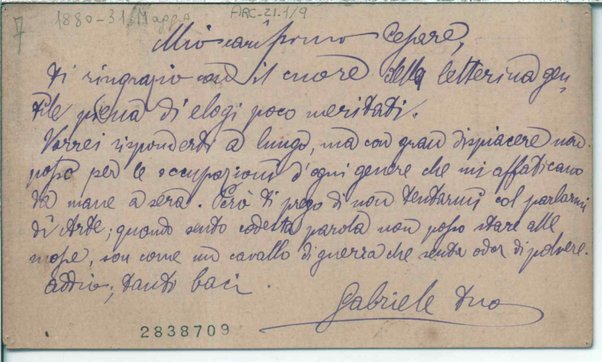 7 1880-31 Maggio ARC-21.1/9
Mio carissimo Cesare,
Ti ringrazio con il cuore della letterina gen-
tile piena di elogi poco meritati.
Vorrei risponderti a lungo, ma con gran dispiacere non
posso per le occupazioni d'ogni genere che mi affaticano
da mane a sera. Però ti prego di non tentarmi col parlarmi
di Arte; quando sento codesta parola non posso stare alle
mosse, son come un cavallo di guerra che senta odor di polvere.
Addio, tanti baci
Gabriele tuo
2838709